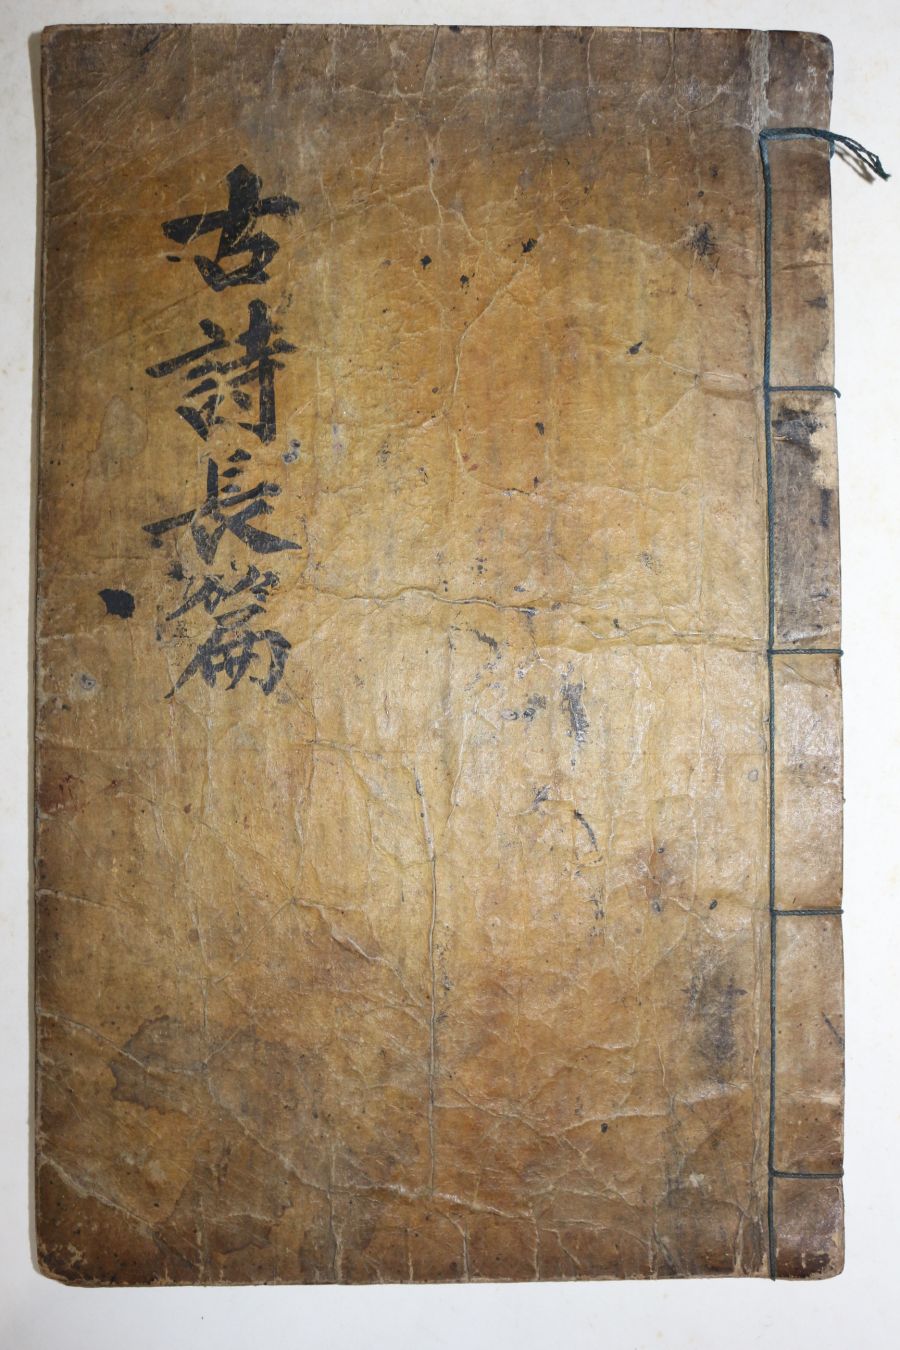 古詩長篇